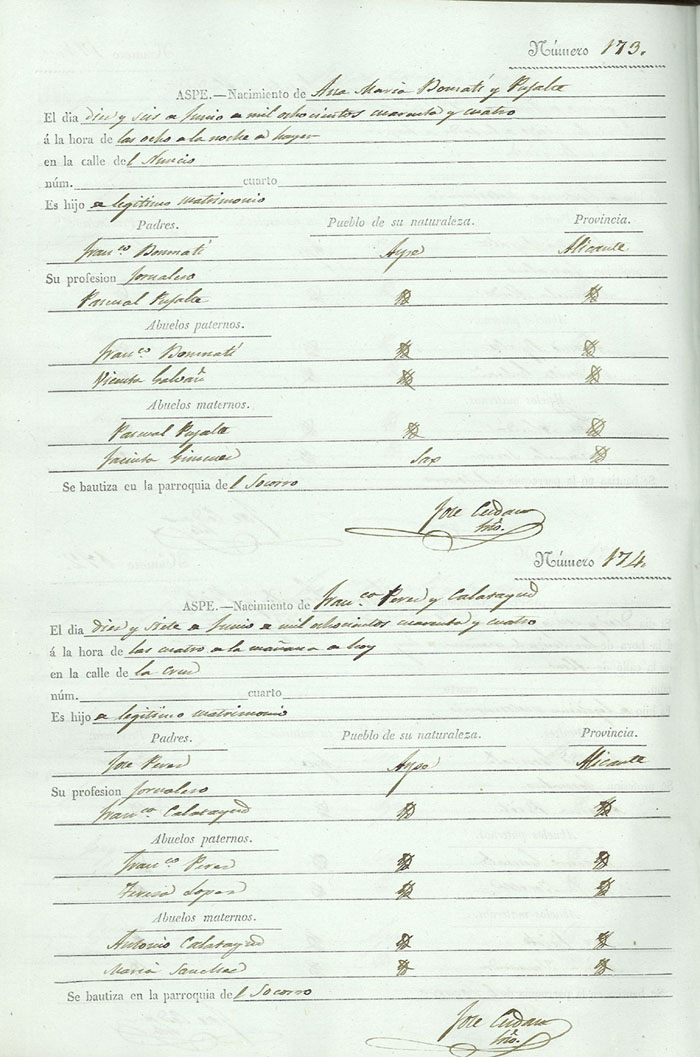 Número 173.
ASPE.—Nacimiento de Ana Maria Bonmatí y Pujalte
El dia diez y seis de Junio de mil ochocientos cuarenta y cuatro
á la hora de las ocho de la noche de hayer
en la calle del Nuncio
núm. cuarto
Es hijo de legitimo matrimonio
Padres. Pueblo de su naturaleza. Provincia.
Franco. Bonmatí Aspe Alicante
Su profesion Jornalero
Pascual Pujalte
Abuelos paternos.
Franco. Bonmatí
Vicenta Galvañ
Abuelos maternos.
Pascual Pujalte
Jacinta Gimenez Sax
Se bautiza en la parroquia del Socorro
Jose
Número 174.
ASPE.—Nacimiento de Franco. Perez y Calatayud
El dia diez y siete de Junio de mil ochocientos cuarenta y cuatro
á la hora de las cuatro de la mañana de hoy
en la calle de la Cruz
núm. cuarto
Es hijo de legitimo matrimonio
Padres. Pueblo de su naturaleza. Provincia.
Jose Perez Aspe Alicante
Su profesion Jornalero
Franca. Calatayud
Abuelos paternos.
Franco. Perez
Teresa Lopez
Abuelos maternos.
Antonio Calatayud
Maria Sanchez
Se bautiza en la parroquia del Socorro
Jose